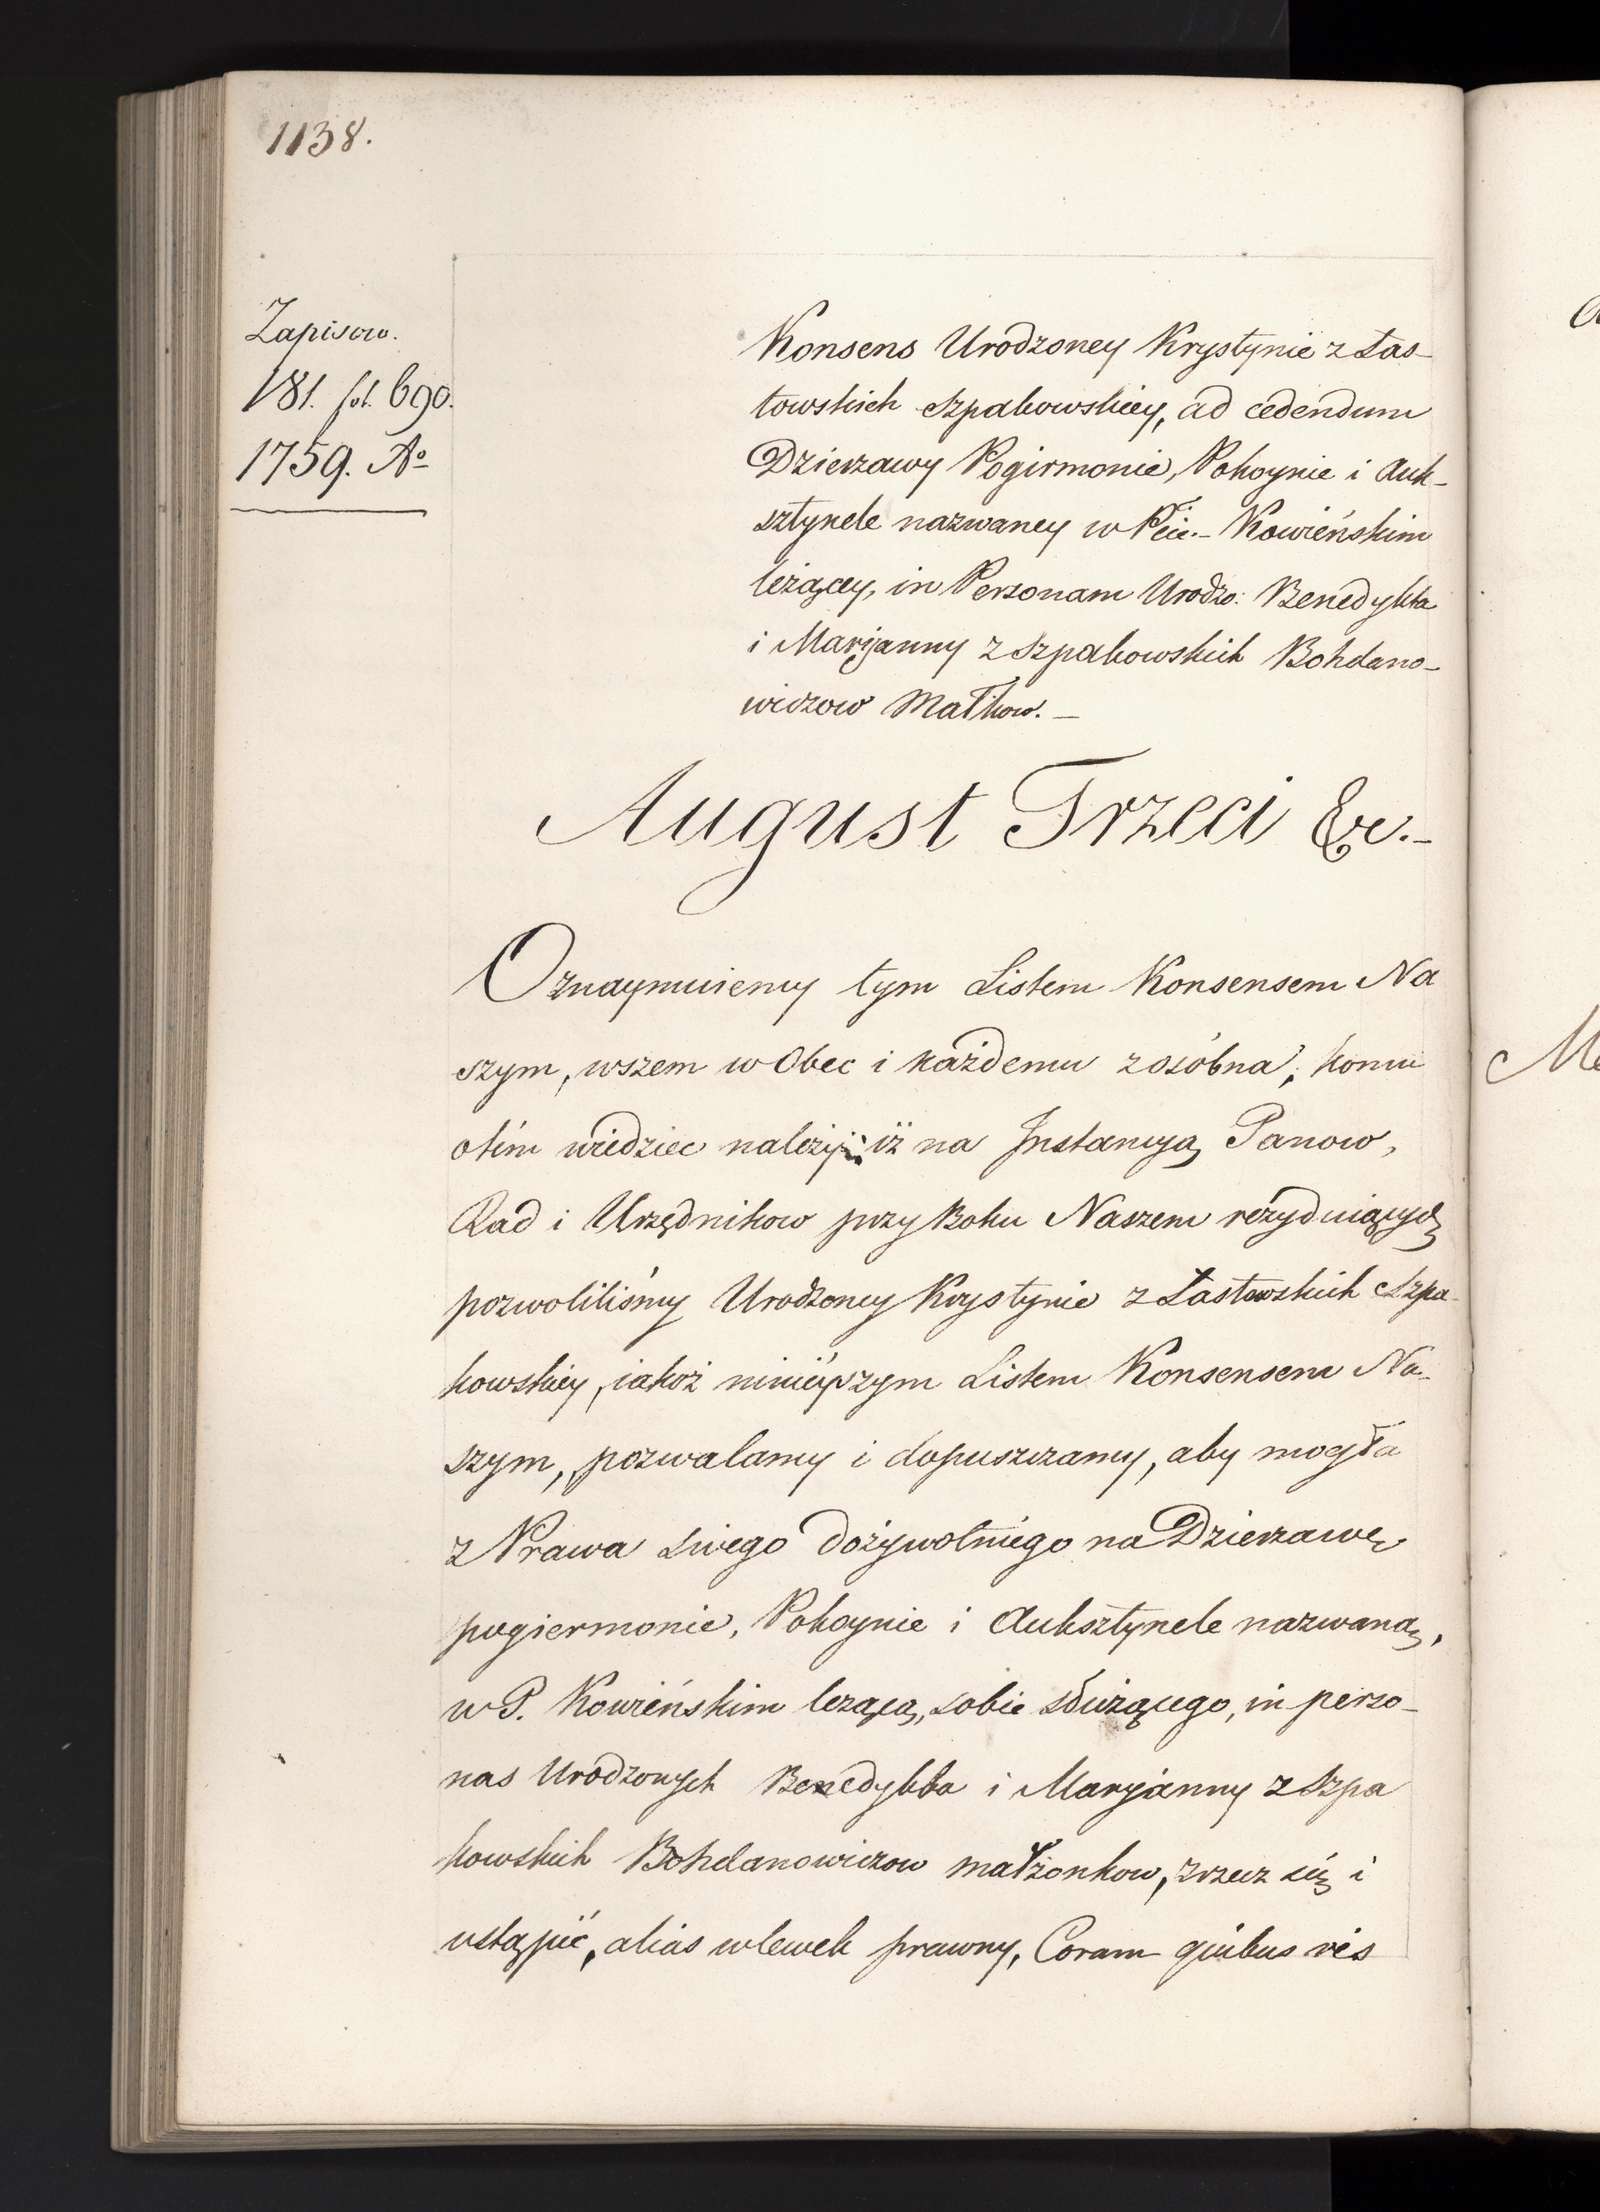 1138.
Zapisow.
181. fol. 690.
1759. Aº
Konsens Urodzoney Krystynie z Łas-
towskich Szpakowskiey, ad cedendum
Dzierzawy Pogirmonie, Pokoynie i Auk-
sztynele nazwaney w Pcie.- Kowieńskim
leżącey, in Personam Urodzo: Benedykta
i Maryanny z Szpakowskich Bohdano-
wiczow Małkow. -
August Trzeci &c.-
Oznaymuiemy tym Listem Konsensem Na
szym, wszem w Obec i każdemu z osóbna, komu
otim wiedziec należy iż na Instancyą Panow,
Rad i Urzędnikow przy Boku Naszem rezyduiących
pozwoliliśmy Urodzoney Krystynie z Łastowskich Szpa-
kowskiey, iakoż ninieyszym Listem Konsensem Na-
szym, pozwalamy i dopuszczamy, aby mogła
z Prawa swego dożywotniego na Dzierzawę
pogiermonie, Pokoynie i Auksztynele nazwaną,
w P. Kowieńskim lezącą, sobie służącego, in perso-
nas Urodzonych Benedykta i Maryanny z Szpa
kowskich Bohdanowiczow małżonkow, zrzecz się i
ustąpić, alias wlewek prawny, Coram quibus vis